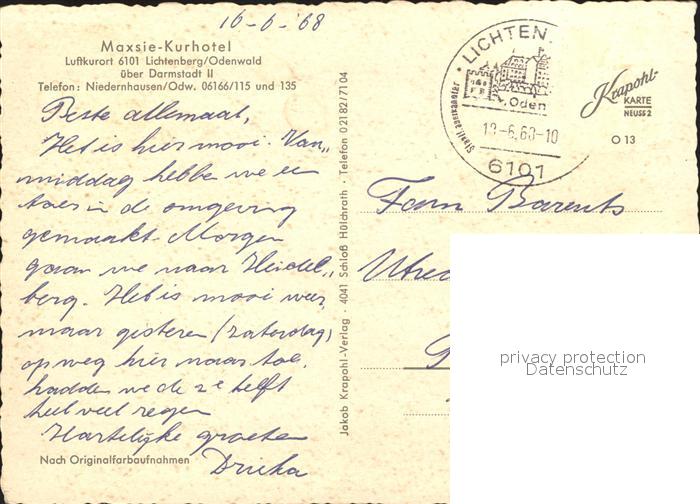 16-6-'68
Maxsie-Kurhotel
Luftkurort 6101 Lichtenberg/Odenwald
über Darmstadt II
Telefon: Niedernhausen/Odw. 06166/115 und 135
Beste allemaal,
Het is hier mooi. Van„
middag hebben we een
toer in de omgeving
gemaakt. Morgen
gaan we naar Heidel„
berg. Het is mooi weer,
maar gisteren (zaterdag)
op weg hier naar toe,
hadden we de 2e helft
heel veel regen
Hartelijke groeten
Drieka
Nach Originalfarbaufnahmen
Jakob Krapohl-Verlag · 4041 Schloß Hülchrath · Telefon 02182/7104
LICHTEN
Oden
-6.68-10
6101
Krapohl-
KARTE
NEUSS 2
O 13
Fam Barents
privacy protection
Datenschutz